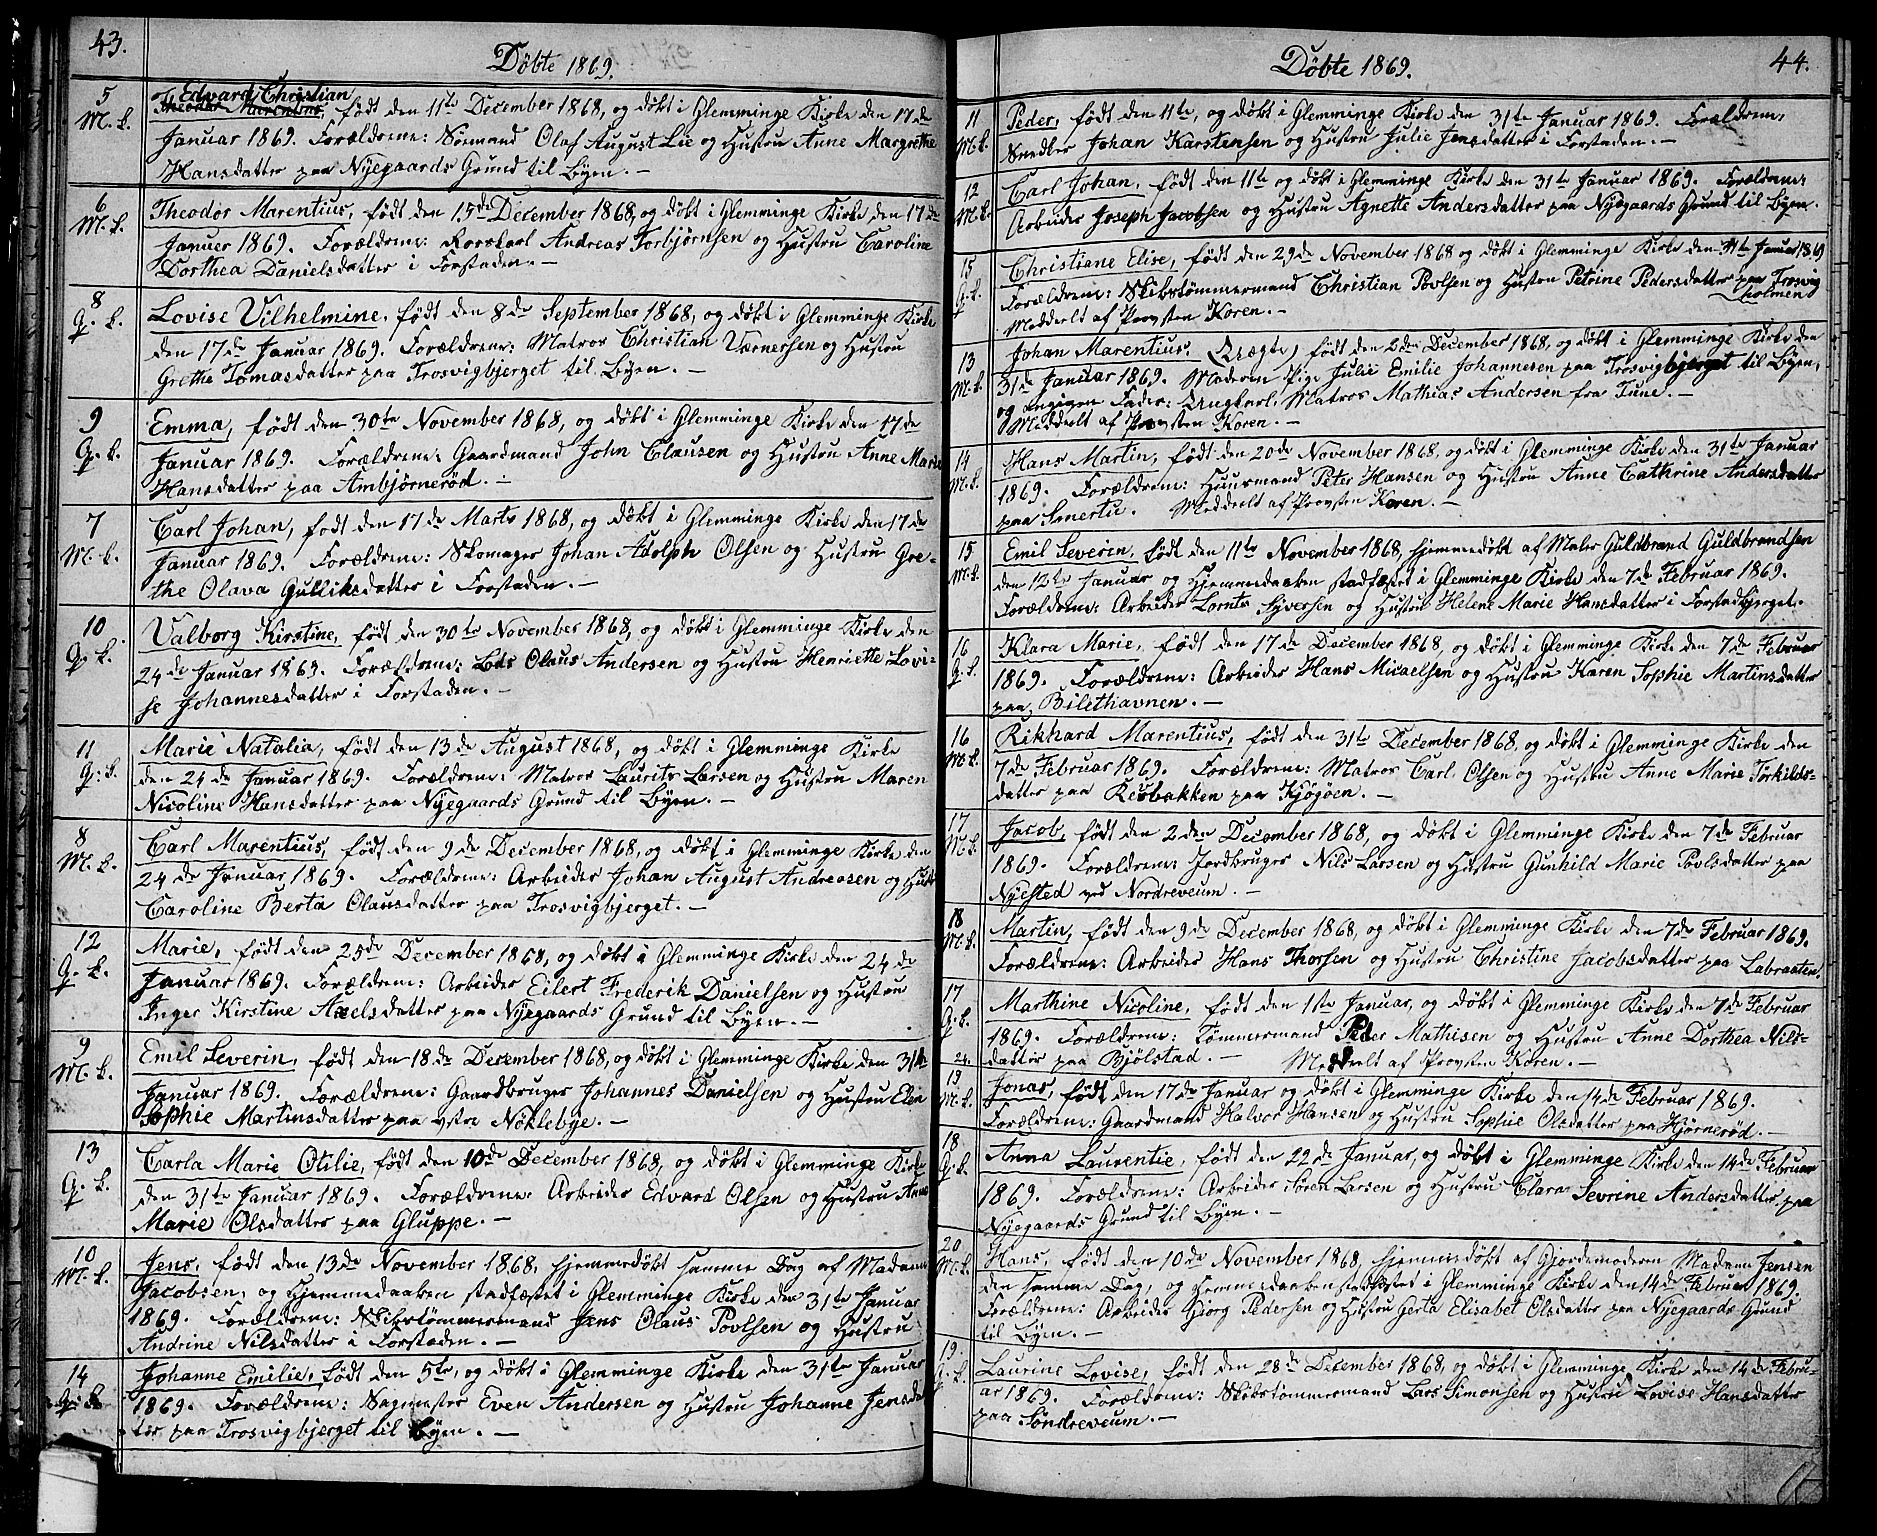 43.
Döbte 1869.
5
M. k.
Edvard Christian
Theodor Marentius, födt den 11te December 1868, og döbt i Glemminge Kirke den 17de
Januar 1869. Forældrene: Sömand Olaf August Lie og Hustru Anne Margrethe
Hansdatter paa Nyegaards Grund til Byen. —
6
M. k.
Theodor Marentius, födt den 15de December 1868, og döbt i Glemminge Kirke den 17de
Januar 1869. Forældrene: Rorskarl Andreas Torbjörnsen og Hustru Caroline
Dorthea Danielsdatter i Forstaden. —
8
Q. k.
Lovise Vilhelmine, födt den 8de September 1868, og döbt i Glemminge Kirke
den 17de Januar 1869. Forældrene: Matros Christian Værnersen og Hustru
Grethe Tomasdatter paa Trosvigbjerget til Byen. —
9
Q. k.
Emma, födt den 30te November 1868, og döbt i Glemminge Kirke den 17de
Januar 1869. Forældrene: Gaardmand John Clausen og Hustru Anne Marie
Hansdatter paa Ambjørnerød. —
7
M. k.
Carl Johan, födt den 17de Marts 1868, og döbt i Glemminge Kirke den 17de
Januar 1869. Forældrene: Skomager Johan Adolph Olsen og Hustru Gre-
the Olava Gulliksdatter i Forstaden. —
10
Q. k.
Valborg Kirstine, födt den 30te November 1868, og döbt i Glemminge Kirke den
24de Januar 1869. Forældrene: Lods Olaus Andersen og Hustru Henriette Lovi-
se Johannesdatter i Forstaden. —
11
Q. k.
Marie Natalia, födt den 13de August 1868, og döbt i Glemminge Kirke
den 24de Januar 1869. Forældrene: Matros Laurits Larsen og Hustru Maren
Nicoline Hansdatter paa Nyegaards Grund til Byen. —
8
M. k.
Carl Marentius, födt den 9de December 1868, og döbt i Glemminge Kirke den
24de Januar 1869. Forældrene: Arbeider Johan August Andreasen og Hustru
Caroline Berta Olausdatter paa Trosvigbjerget. —
12
Q. k.
Marie, födt den 25de December 1868, og döbt i Glemminge Kirke den 24de
Januar 1869. Forældrene: Arbeider Eilert Frederik Danielsen og Hustru
Inger Kirstine Axelsdatter paa Nyegaards Grund til Byen. —
9
M. k.
Emil Severin, födt den 18de December 1868, og döbt i Glemminge Kirke den 31te
Januar 1869. Forældrene: Gaardbruger Johannes Danielsen og Hustru Elen
Sophie Martinsdatter paa Østre Nöklebye. —
13
Q. k.
Carla Marie Otilie, födt den 10de December 1868, og döbt i Glemminge Kirke
den 31te Januar 1869. Forældrene: Arbeider Edvard Olsen og Hustru Anne
Marie Olsdatter paa Gluppe. —
10
M. k.
Jens, födt den 13de November 1868, hjemmedöbt samme Dag af Madame
Jacobsen, og Hjemmedaaben stadfæstet i Glemminge Kirke den 31te Januar
1869. Forældrene: Skibstömmermand Jens Olaus Povlsen og Hustru
Andrine Nilsdatter i Forstaden. —
14
Q. k.
Johanne Emilie, födt den 5te, og döbt i Glemminge Kirke den 31te Januar
1869. Forældrene: Sagmester Even Andersen og Hustru Johanne Jensdat-
ter paa Trosvigbjerget til Byen. —
Döbte 1869.
44.
11
M. k.
Peder, födt den 11te, og döbt i Glemminge Kirke den 31te Januar 1869. Forældrene,
Snedker Johan Karstensen og Hustru Julie Jensdatter i Forstaden. —
12
M. k.
Carl Johan, födt den 11te og döbt i Glemminge Kirke den 31te Januar 1869. Forældrene:
Arbeider Joseph Jacobsen og Hustru Agnette Andersdatter paa Nyegaards Grund til Byen.
15
Q. k.
Christiane Elise, födt den 29de November 1868 og döbt i Glemminge Kirke den 31te Januar 1869
Forældrene: Skibstömmermand Christian Povlsen og Hustru Petrine Pedersdatter paa Trosvig
holmen
Meddelt af Provsten Koren. —
13
M. k.
Johan Marentius, (Uægte) födt den 2den December 1868, og döbt i Glemminge Kirke den
31te Januar 1869. Moderen Pige Julie Emilie Johannesen paa Trosvigbjerget til Byen,
og angiven Fader: Ungkarl, Matros Mathias Andersen fra Tune. —
Meddelt af Provsten Koren. —
14
M. k.
Hans Martin, födt den 20de November 1868, og döbt i Glemminge Kirke den 31te Januar
1869. Forældrene: Huusmand Peter Hansen og Hustru Anne Cathrine Andersdatter
paa Smertu. Meddelt af Provsten Koren. —
15
M. k.
Emil Severin, födt den 11te November 1868, hjemmedöbt af Maler Guldbrand Guldbrandsen
den 12te Januar og Hjemmedaaben stadfæstet i Glemminge Kirke den 7de Februar 1869.
Forældrene: Arbeider Lornts Syversen og Hustru Helene Marie Hansdatter i Forstadbjerget.
16
Q. k.
Klara Marie, födt den 17de December 1868, og döbt i Glemminge Kirke den 7de Februar
1869. Forældrene: Arbeider Hans Micaelsen og Hustru Karen Sophie Martinsdatter
paa Bilethavnen. —
16
M. k.
Rikhard Marentius, födt den 31te December 1868, og döbt i Glemminge Kirke den
7de Februar 1869. Forældrene: Matros Carl Olsen og Hustru Anne Marie Torkilds-
datter paa Resbakken paa Kjøgøen. —
17
M. k.
Jacob, födt den 2den December 1868, og döbt i Glemminge Kirke den 7de Februar
1869. Forældrene: Jordbruger Nils Larsen og Hustru Gunhild Marie Povlsdatter paa
Nyested ved Nordreveum. —
18
M. k.
Martin, födt den 9de December 1868, og döbt i Glemminge Kirke den 7de Februar 1869.
Forældrene: Arbeider Hans Thorsen og Hustru Christine Jacobsdatter paa Labraaten.
17
Q. k.
24.
Marthine Nicoline, födt den 1ste Januar, og döbt i Glemminge Kirke den 7de Februar
1869. Forældrene: Tömmermand Peder Mathisen og Hustru Anne Dorthea Nils-
datter paa Bjölstad. — Meddelt af Provsten Koren. —
19
M. k.
Jonas, födt den 17de Januar og döbt i Glemminge Kirke den 14de Februar 1869.
Forældrene: Gaardmand Halvor Hansen og Hustru Sophie Olsdatter paa Hjørnerød. —
18
Q. k.
Anna Laurentie, födt den 22de Januar, og döbt i Glemminge Kirke den 14de Februar
1869. Forældrene: Arbeider Sören Larsen og Hustru Clara Sevrine Andersdatter paa
Nyegaards Grund til Byen. —
20
M. k.
Hans, födt den 10de November 1868, hjemmedöbt af Gjordemoderen Madame Jensen
den samme Dag, og Hjemmedaaben stadfæstet i Glemminge Kirke den 14de Februar 1869.
Forældrene: Arbeider Gjorg Pedersen og Hustru Gerta Elisabet Olsdatter paa Nyegaards Grund
til Byen. —
19.
Q. k.
Laurine Lovise, födt den 28de December 1868, og döbt i Glemminge Kirke den 14de Febru-
ar 1869. Forældrene: Skibstömmermand Lars Simonsen og Hustru Lovise Hansdatter
paa Søndreveum. —